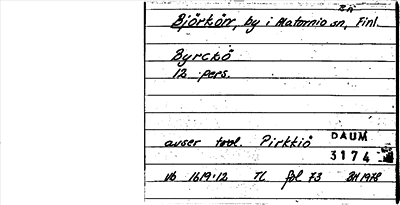 Björkön, by i Alatornio sn, Finl.
Byrckö
12 pers.
avser trol. Pirkkiö
DAUM
3174
vb 1619:12 TL fol 73 BH 1978